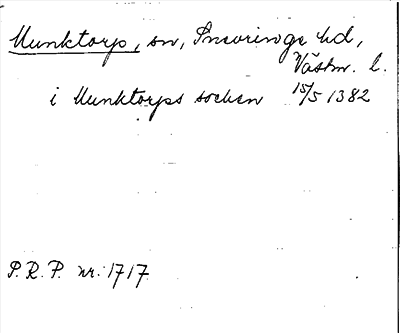 Munktorp, sn, Snevringe hd,
Västm. l.
i Munktorps socken 15/5 1382
P.R.P. nr: 1717